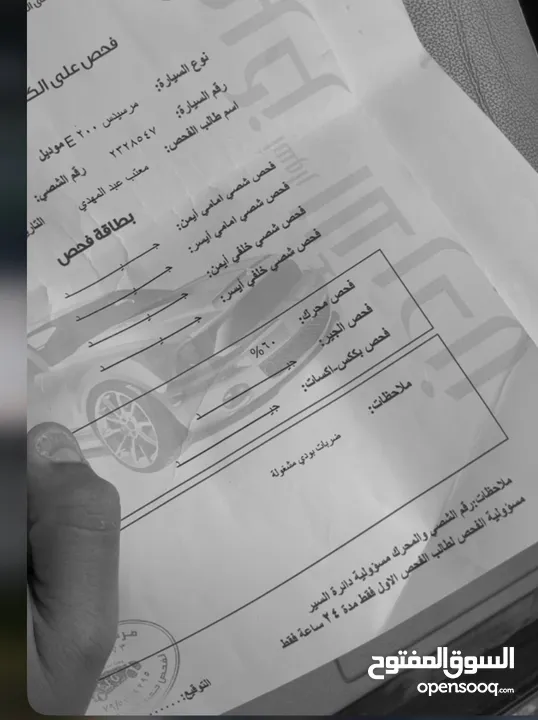 فحص على الك
نوع السيارة: مرسيدس E ٢٠٠ موديل
رقم السيارة: ٢٣٢٨٥٤٧ رقم الشصي:
اسم طالب الفحص: معتب عبد المهدي
بطاقة فحص
فحص شصي امامي ايمن: جيد
فحص شصي امامي ايسر: جيد
فحص شصي خلفي ايمن: جيد
فحص شصي خلفي ايسر: جيد
فحص محرك: ٦٠%
فحص الجير: جيد
فحص بكس-اكسات: جيد
ملاحظات:
ضربات بودي مشغولة
ملاحظات:رقم الشصي والمحرك مسؤولية دائرة السير
مسؤولية الفحص لطالب الفحص الاول فقط مدة ٢٤ ساعة فقط
التوقيع:
السوق المفتوح
opensooq.com